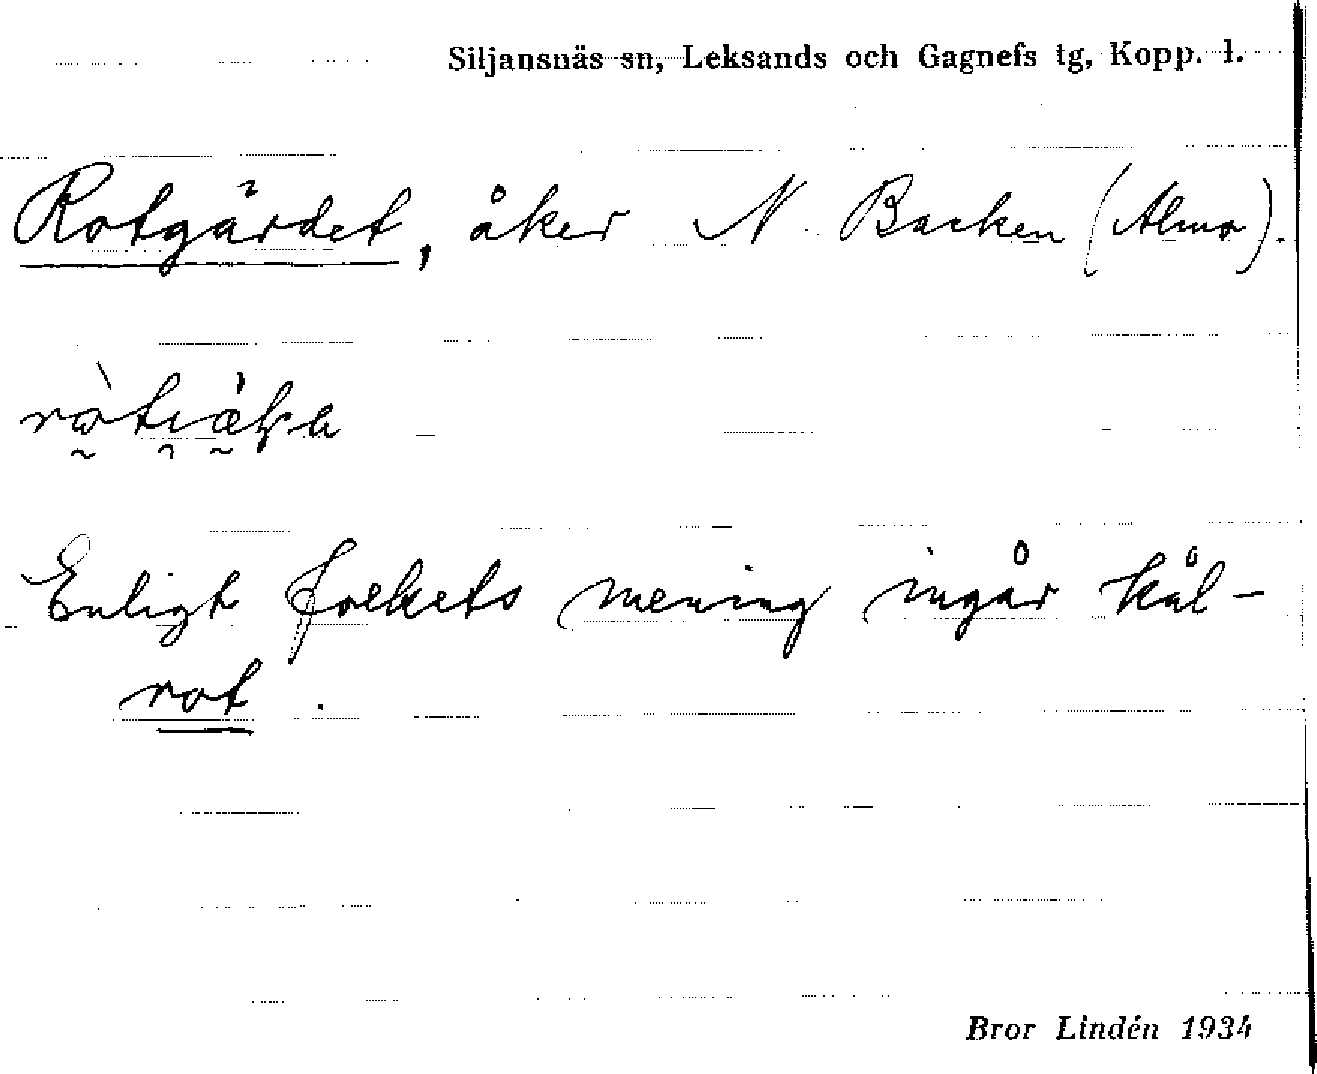 Siljansnäs sn, Leksands och Gagnefs tg, Kopp. l.
Rotgärdet, åker N. Backen (Almo).
Enligt folkets mening ingår kål-
rot.
Bror Lindén 1934